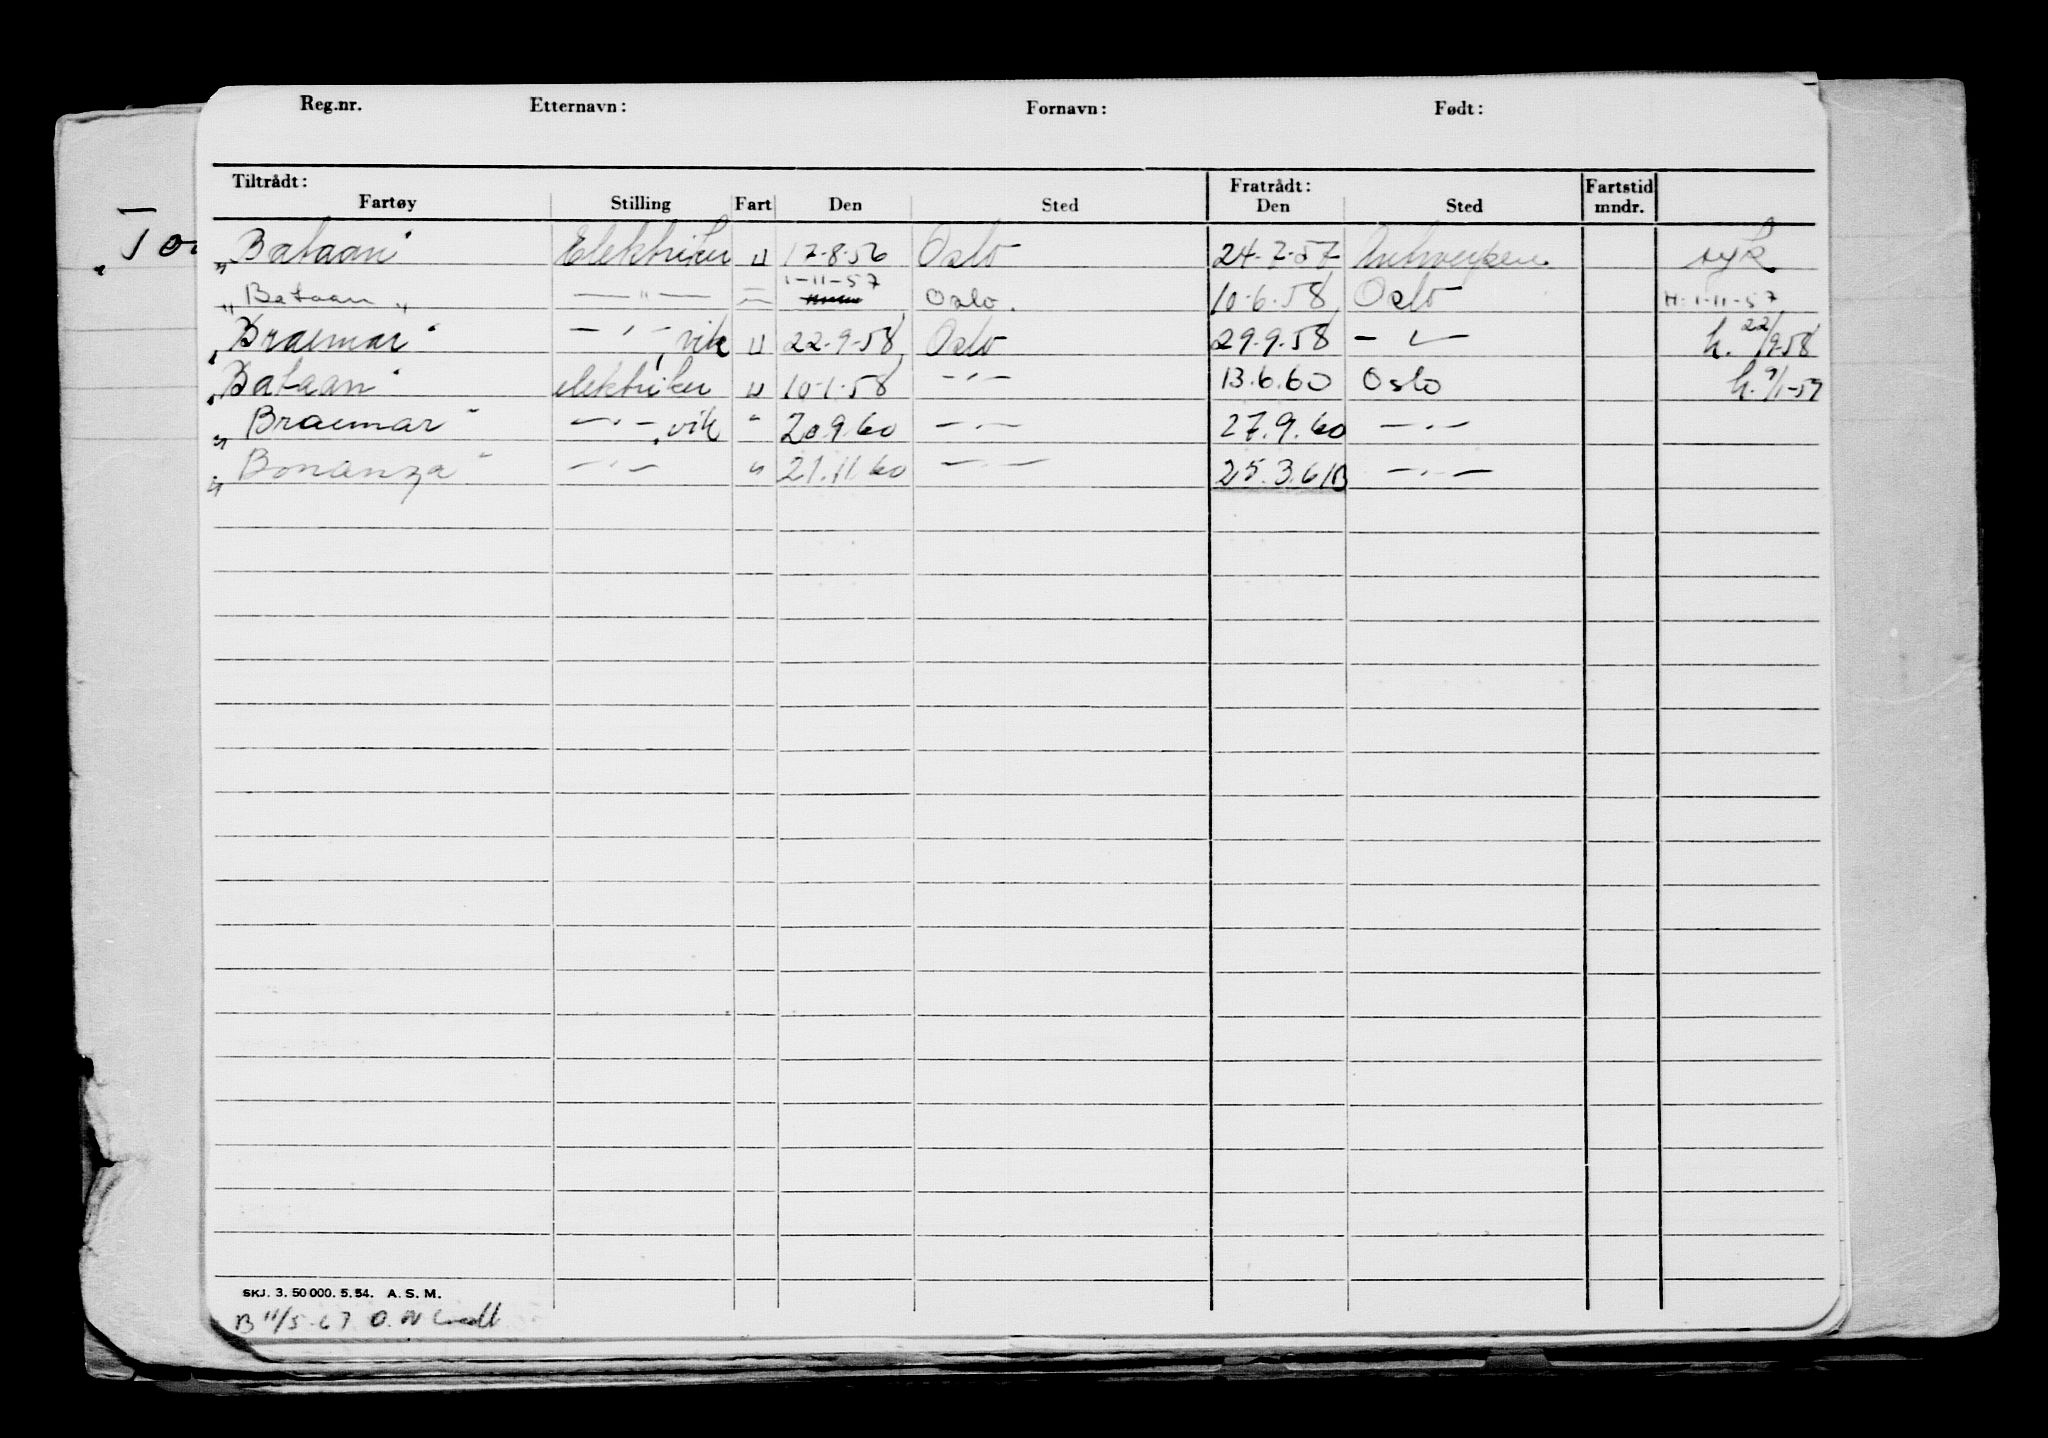 Reg.nr. Etternavn: Fornavn: Født:
Tiltrådt: Fratrådt: Fartstid
Fartøy Stilling Fart Den Sted Den Sted mndr.
„Bataan" Elektriker U 17-8-56 Oslo 24-7-57 Antwerpen syk
1-11-57
„Bataan„ —"— = Oslo. 10-6-58 Oslo H. 1-11-57
„Braemar" —"—, vik U 22-9-58 Oslo 29.9.58 —"— h. 22/9-58
„Bataan" elektriker U 10-1-58 —"— 13.6.60 Oslo h. 9/1-59
„Braemar" —"—, vik " 20.9.60 —"— 27.9.60 —"—
„Bonanza" —"— " 21.11.60 —"— 25.3.61B —"—
SKJ. 3. 50 000. 5. 54. A. S. M.
B 11/5-67 O.